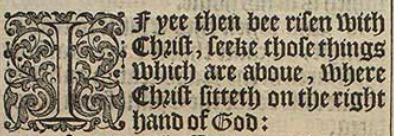 IF yee then bee risen with
Christ, seeke those things
which are aboue, where
Christ sitteth on the right
hand of God: